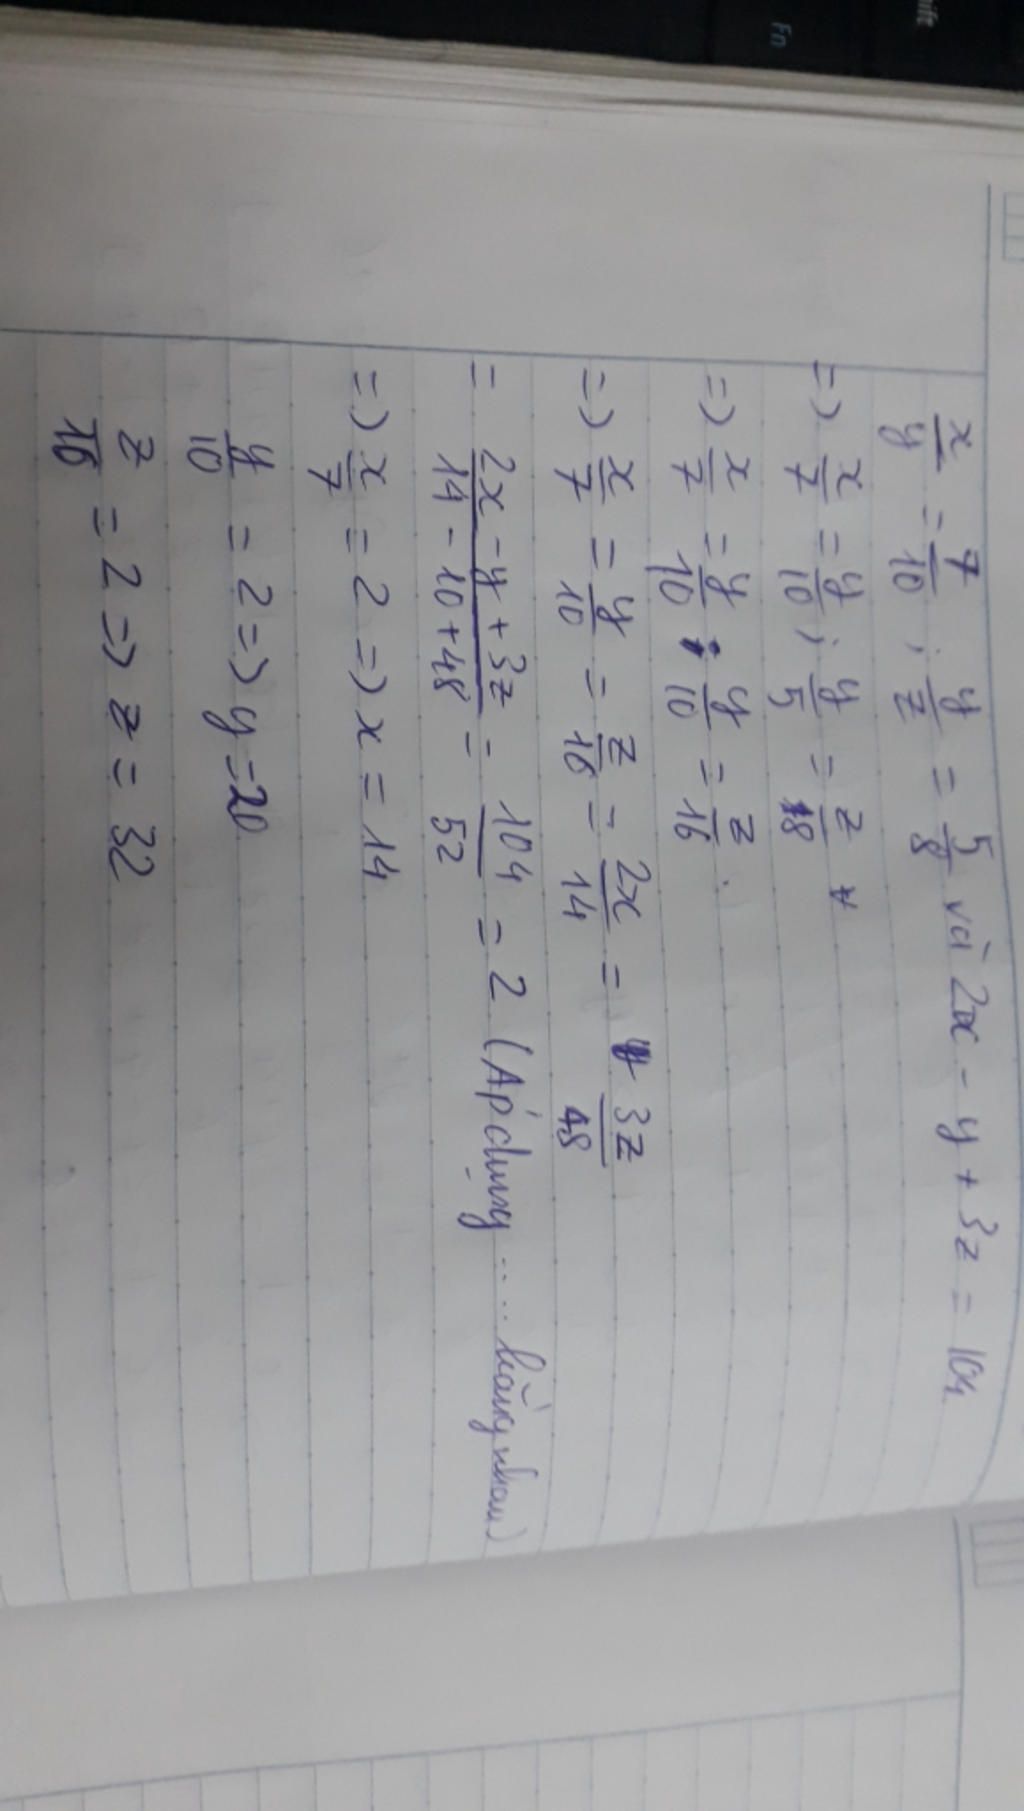 Fn
x/y = 7/10 ; y/z = 5/8 và 2x - y + 3z = 104
=> x/7 = y/10 ; y/5 = z/8
=> x/7 = y/10 ; y/10 = z/16 .
=> x/7 = y/10 = z/16 = 2x/14 = 3z/48
= 2x - y + 3z/14 - 10 + 48 = 104/52 = 2 (Áp dụng .... bằng nhau)
=> x/7 = 2 => x = 14
y/10 = 2 => y = 20
z/16 = 2 => z = 32